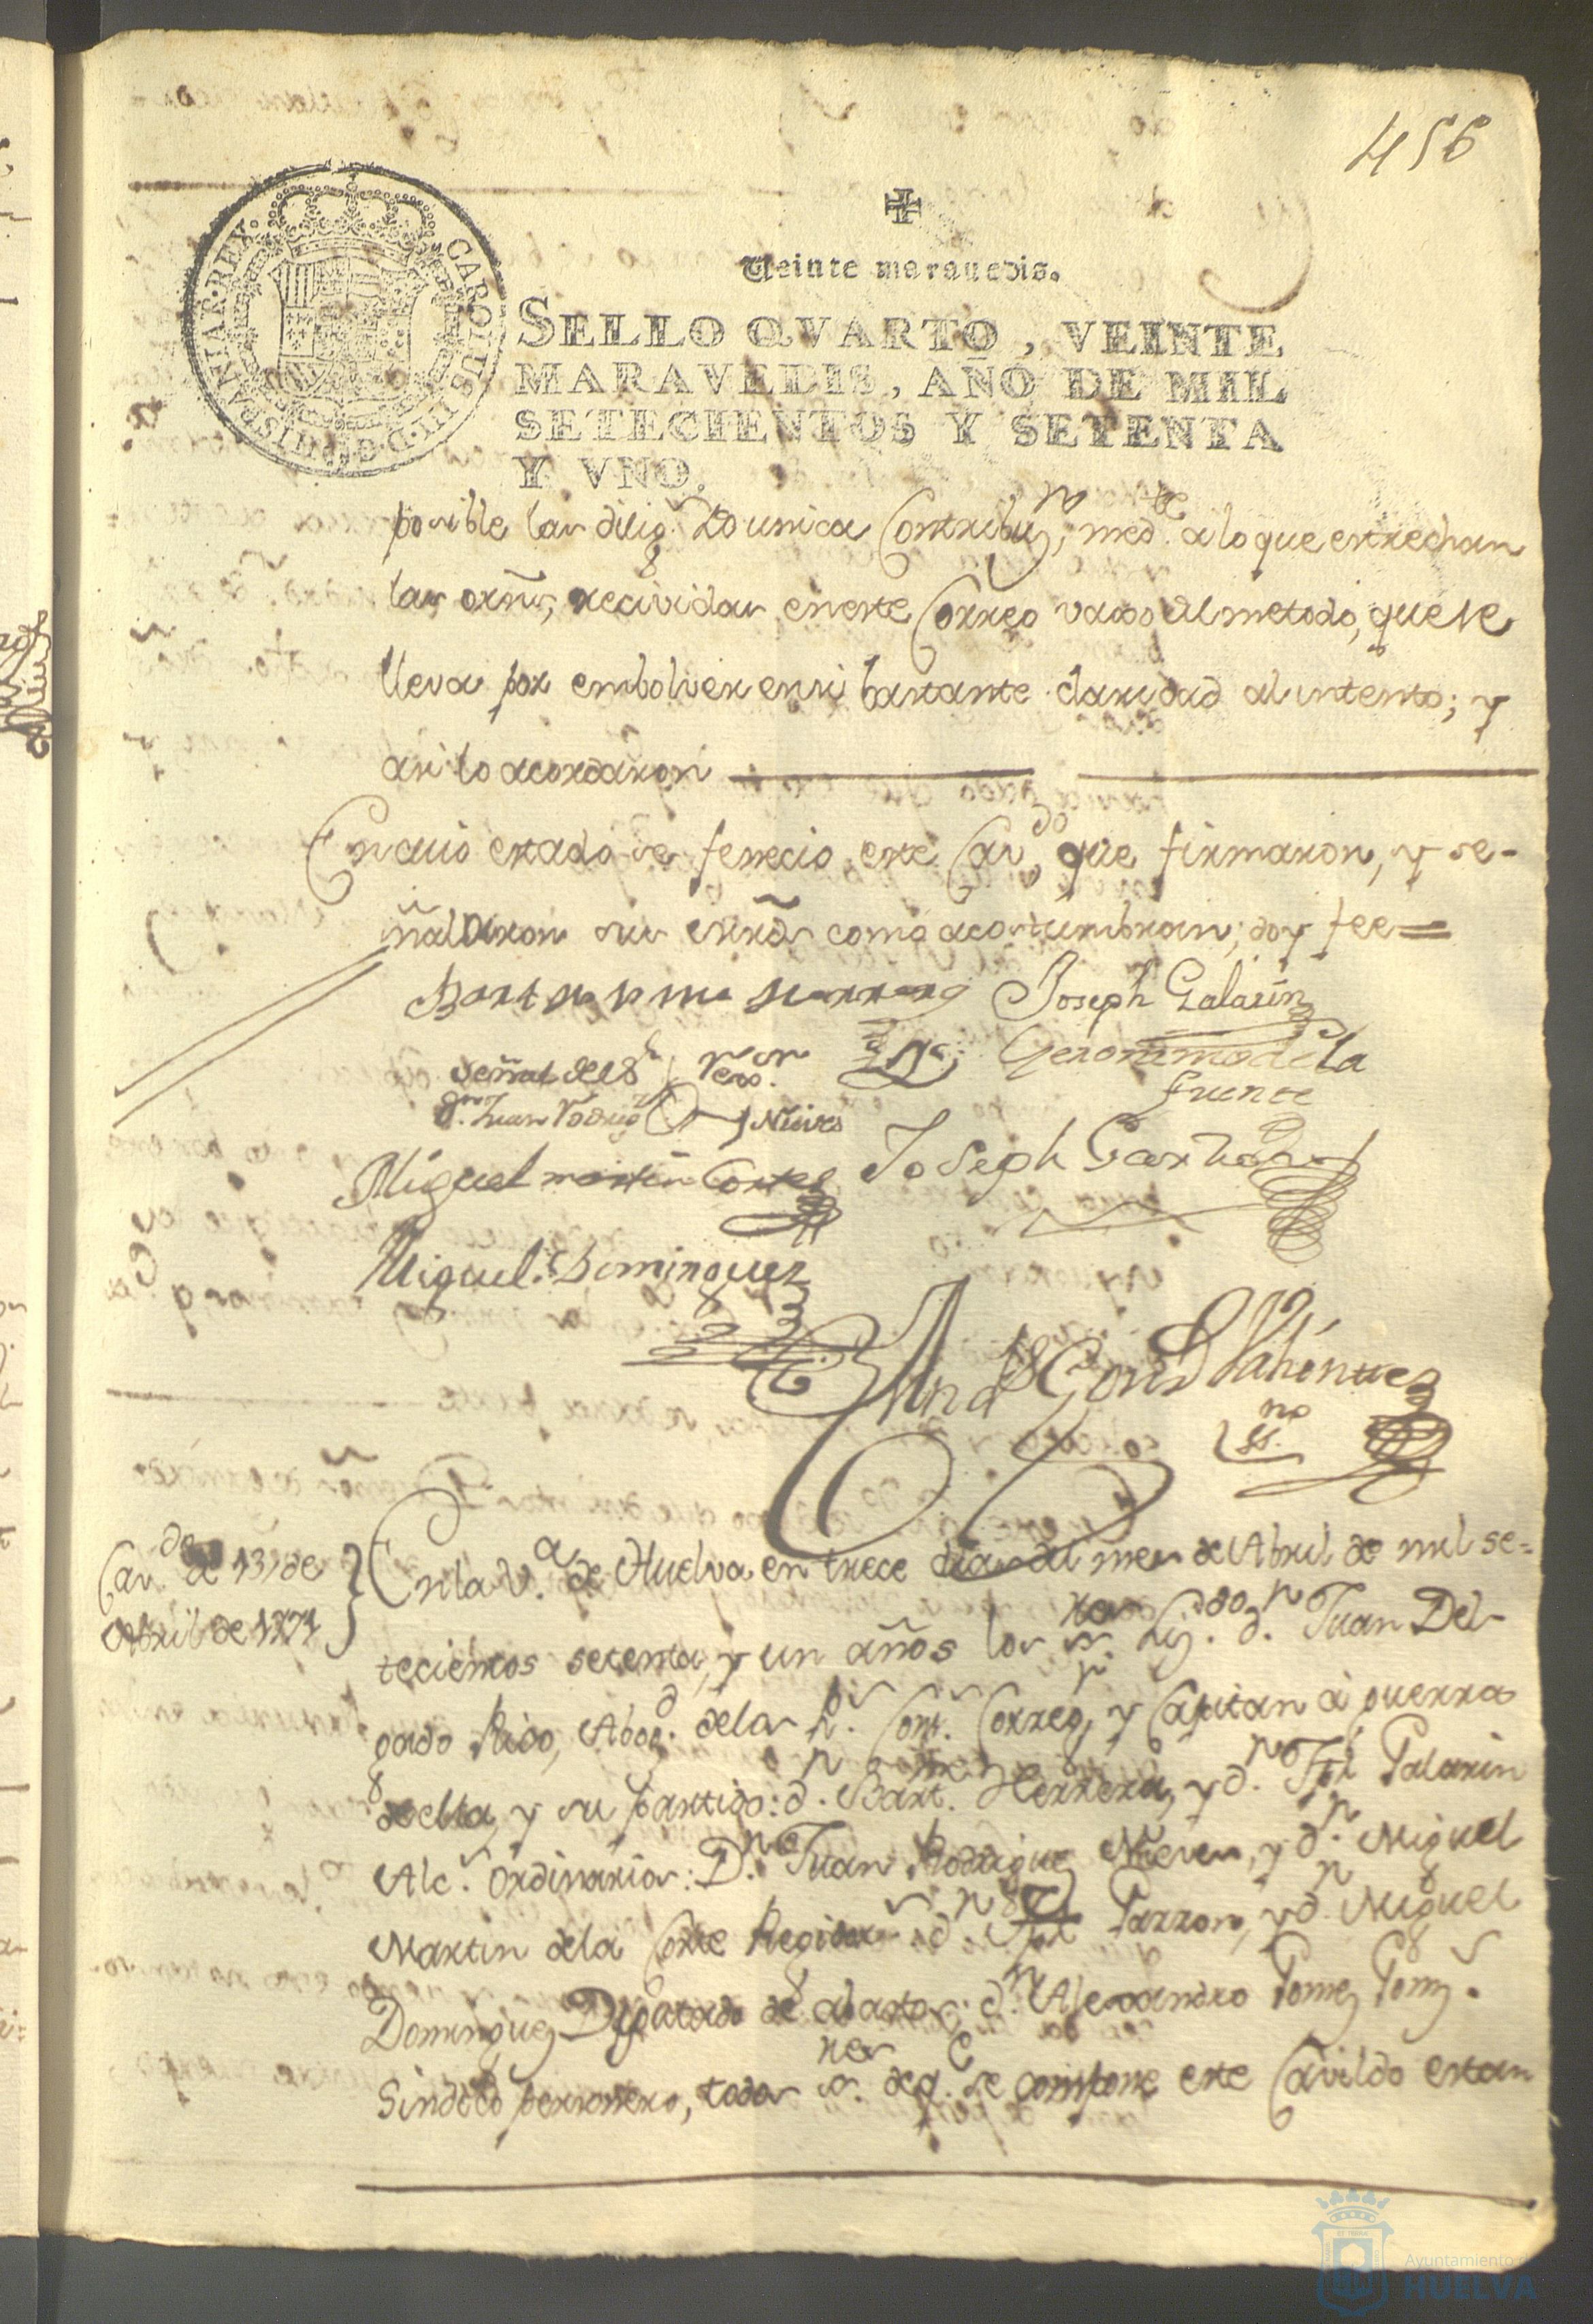 456
CAROLUS III D G HISPANIAR REX
Veinte maravedis.
SELLO QVARTO, VEINTE
MARAVEDIS, AÑO DE MIL
SETECIENTOS Y SETENTA
Y VNO.
posible las dilig.s Dʰᵃ unica Contribuz.ⁿ, med.te a lo que estrechan
las orñs, recividas en este Correo vajo el metodo, que se
lleva por embolver en si bastante claridad al intento; y
asi lo acordaron
En cuio estado se fenecio este Cav.do que firmaron, y se-
ñalaron sus mrds como acostumbran; doy fee =
Joseph Galarin
Geronimo de la
fuente
Señal del S.r
D.n Juan Rodrig.z Nieves
Miguel martin Cortes
Miguel Dominguez
Cav.do de 13, de
Abril de 1771
En la V.a de Huelva en trece dias del mes de Abril de mil se=
tecientos setenta, y un años los s.res Liz.do d.n Juan Del-
gado Rico, Abog.do de los R.s Con.s Correg.r, y Capitan à guerra
de ella, y su partido: d.n Bart.me Herrera, y d.n Jph Galarin
Alc.s ordinarios: D.n Juan Rodriguez Nieves, y d.n Miguel
Martin de la Corte Regidor.s d.n Jph Garzon, y d.n Miguel
Dominguez Diputado de abastos: d.n Alexandro Gomez
Sindico personero, todos s.res de q.e se compone este Cavildo estan
Ayuntamiento de
HUELVA